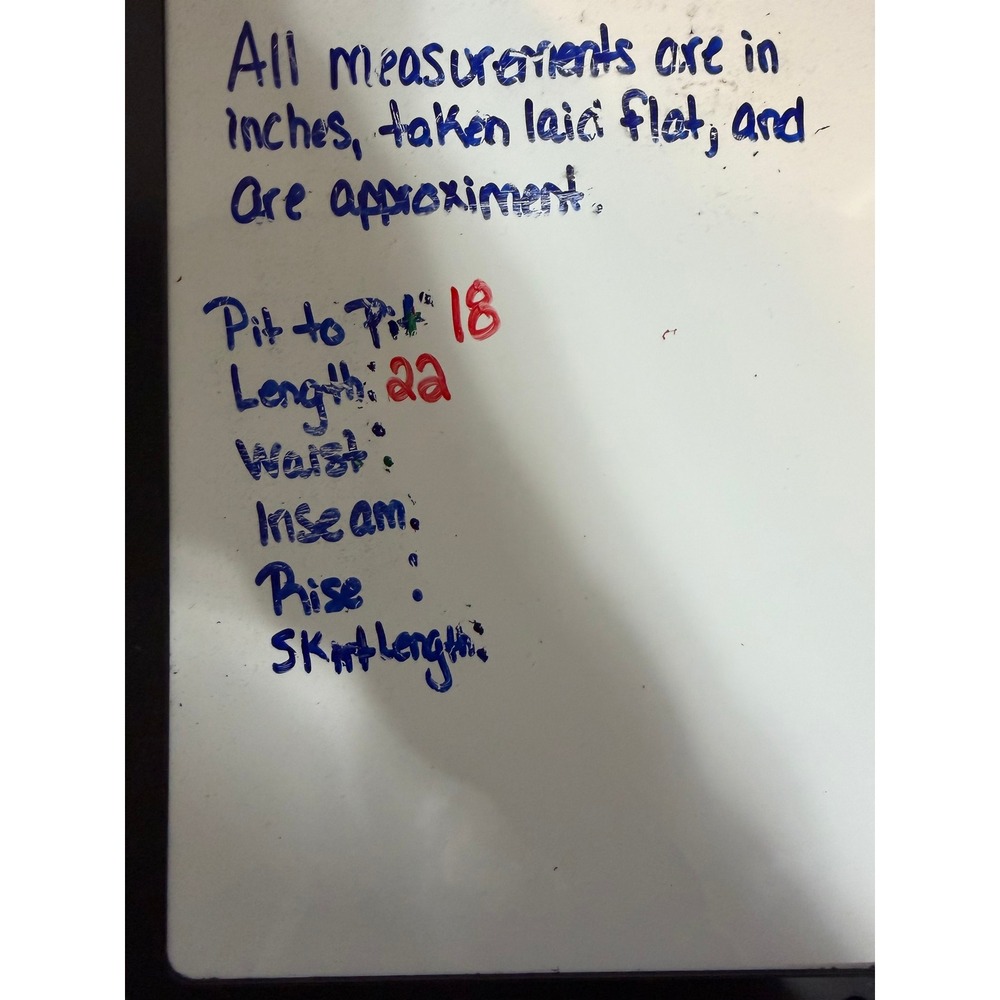 All measurements are in
inches, taken laid flat, and
are approximent.
Pit to Pit: 18
Length: 22
Waist:
Inseam:
Rise :
Skirt Length: